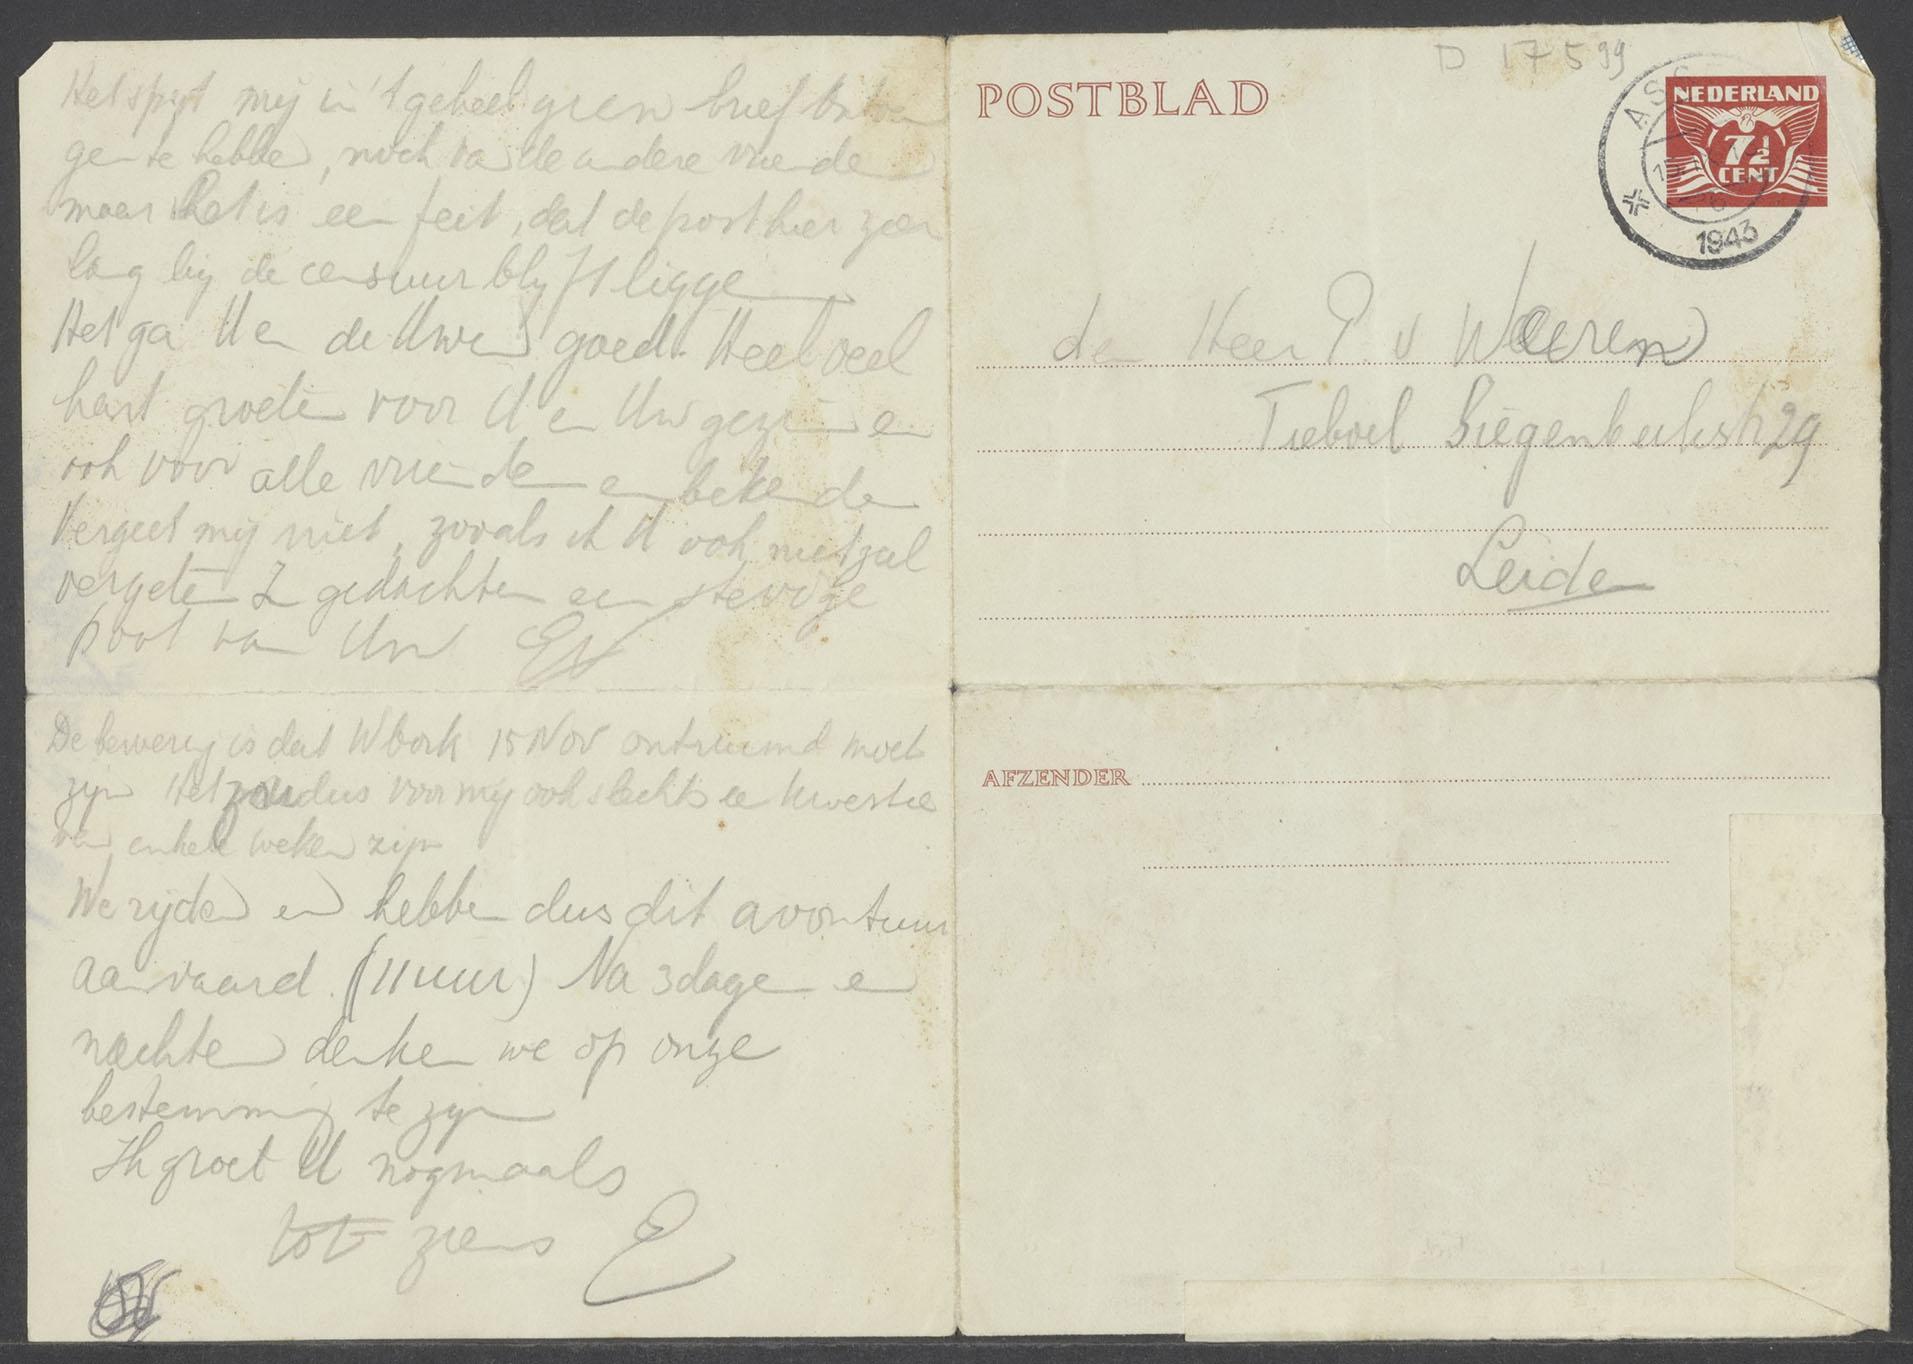 Het spijt mij in 't geheel geen brief ontvan
gen te hebbe, noch va de andere vriende
maar Het is een feit, dat de post hier zeer
lang bij de censuur blijft ligge
Het ga U en de Uwen goed. Heel veel
hart groeten voor U en Uw gezin en
ook voor alle vrienden en bekende
Vergeet mij niet, zooals ik U ook niet zal
vergeten I gedachten een stevige
poot van Uw
De bewering is dat Wbork 15 Nov ontruimd moet
zijn Het zou dus voor mij ook slechts ee kwestie
van enkele weken zijn
We rijden en hebben dus dit avontuur
aanvaard. (11 uur) Na 3 dage en
nachten denken we op onze
bestemming te zijn
Ik groet U nogmaals
tot ziens E
D 17599
POSTBLAD
NEDERLAND
7½
CENT
1943
den Heer P. v Weeren
Tieboel Siegenbeekstr 29
Leiden
AFZENDER